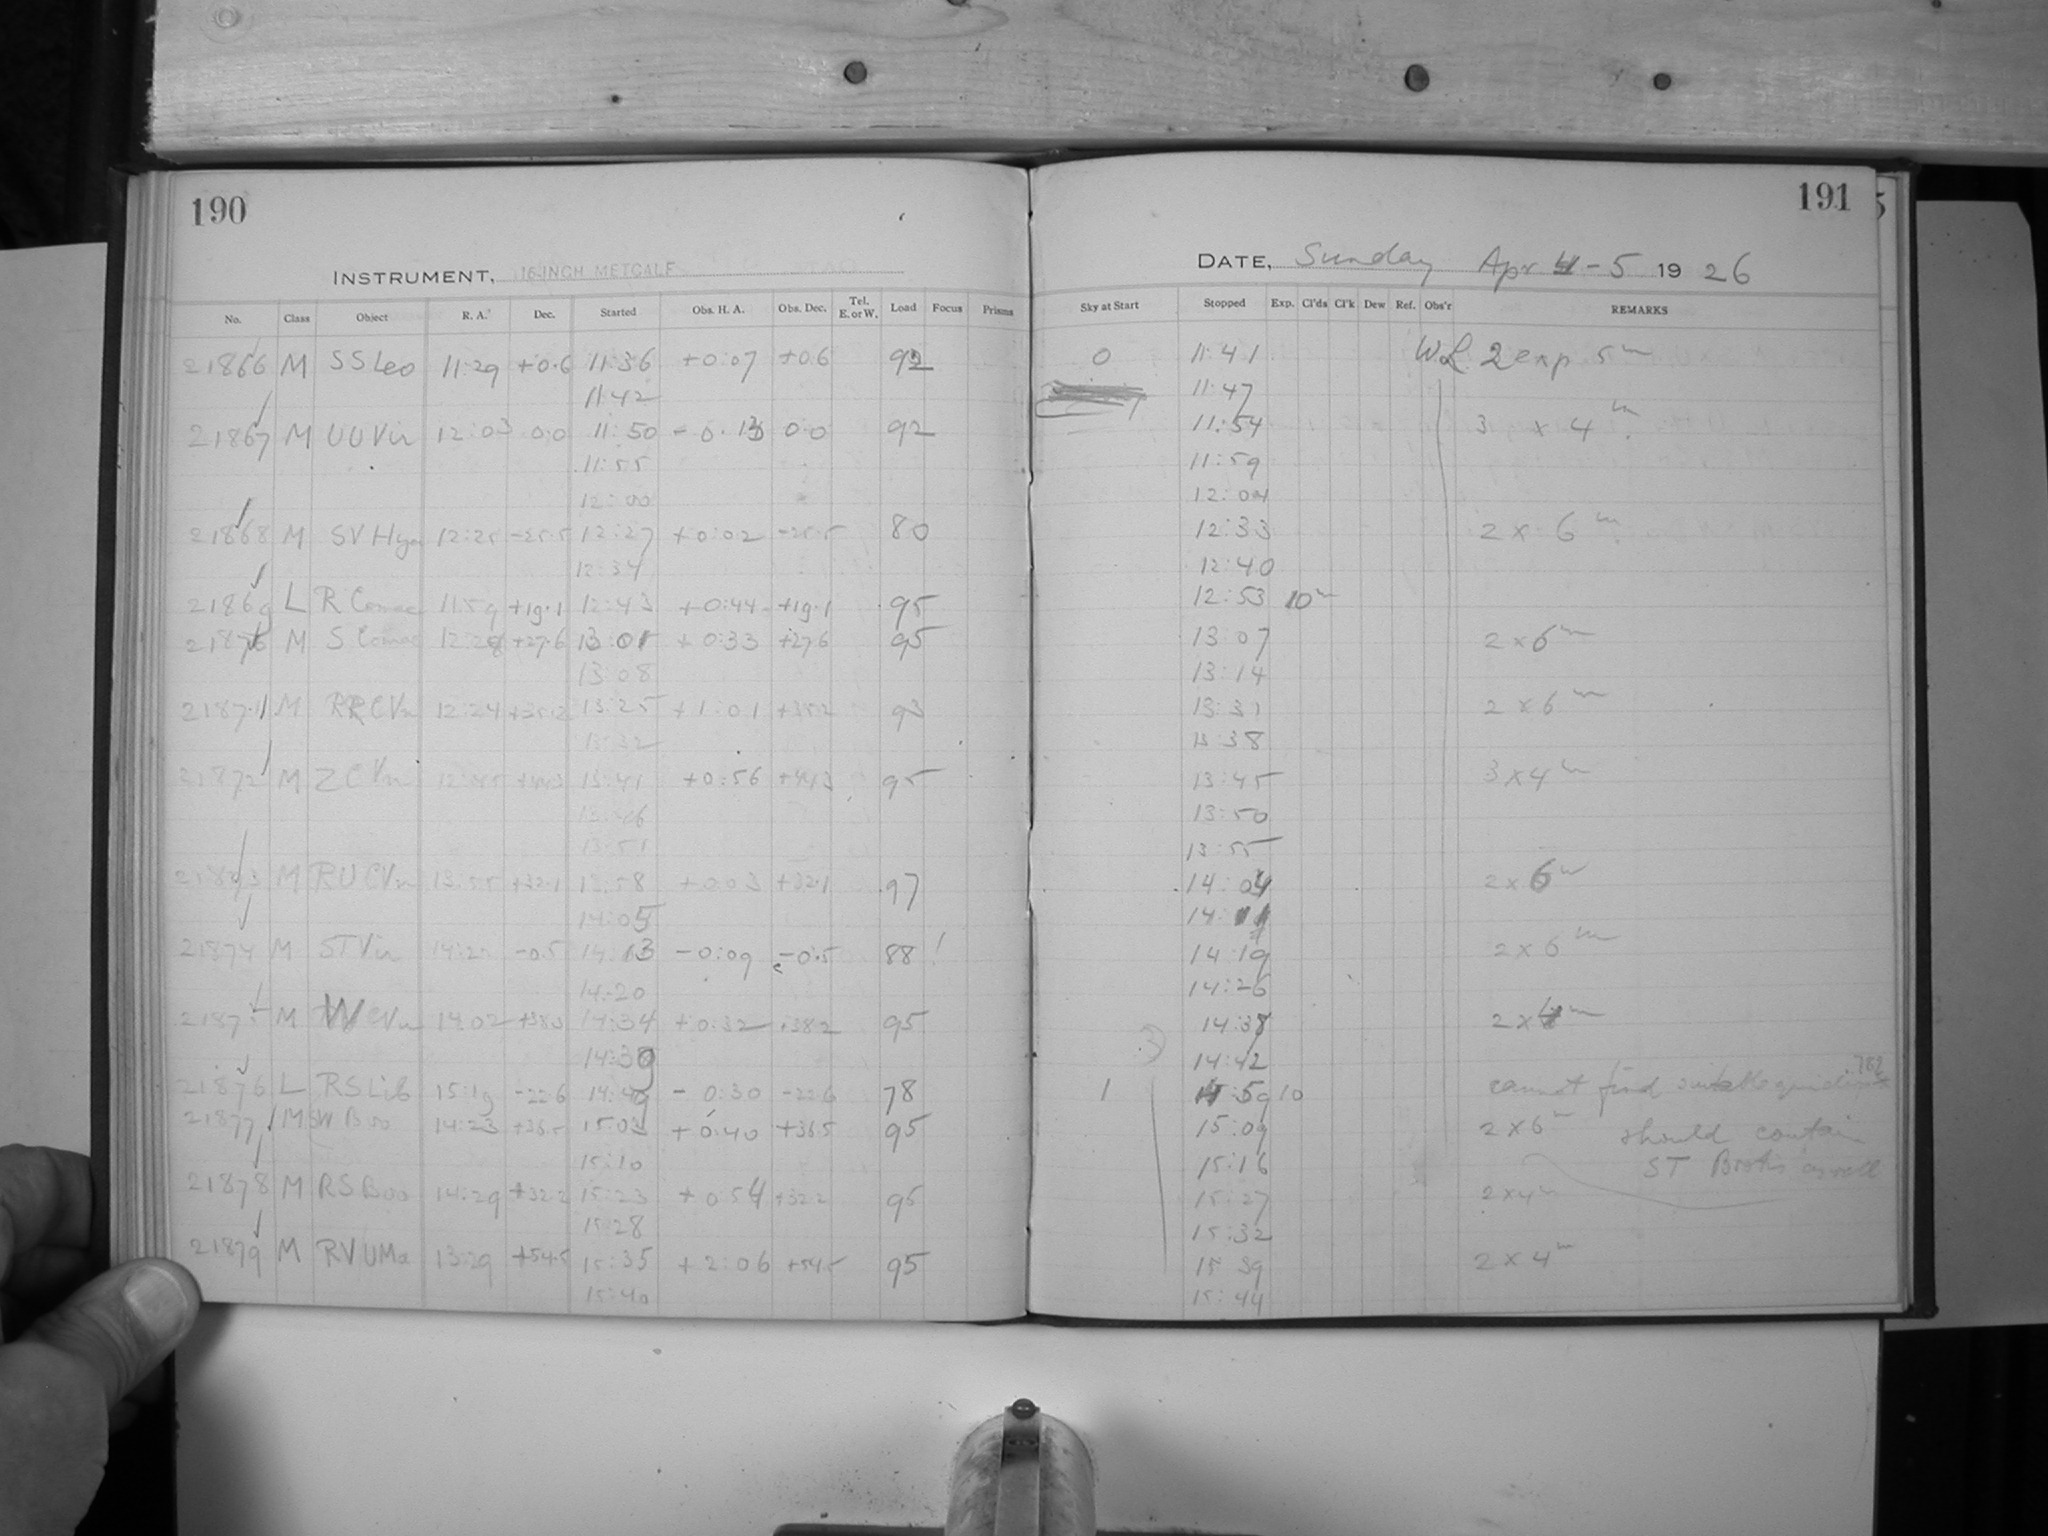 190
INSTRUMENT, 16-INCH METCALF
No. Class Object R. A. Dec. Started Obs. H. A. Obs. Dec. Tel. E. or W. Load Focus Prisms
21866 M SS Leo 11:29 +0.6 11:36 +0:07 +0.6 92
11:42
21867 M UU Vir 12:03 0.0 11:50 -0:13 0.0 92
11:55
12:00
21868 M SV Hya 12:25 -25.5 12:27 +0:02 -25.5 80
12:34
21869 L R Comae 11:59 +19.1 12:43 +0:44 +19.1 95
21870 M S Comae 12:28 +27.6 13:01 +0:33 +27.6 95
13:08
21871 M RR CVn 12:24 +35.2 13:25 +1:01 +35.2 93
13:32
21872 M Z CVn 12:45 +44.3 13:41 +0:56 +44.3 95
13:46
13:51
21873 M RU CVn 13:55 +32.1 13:58 +0:03 +32.1 97
14:05
21874 M ST Vir 14:22 -0.5 14:13 -0:09 -0.5 88
14:20
21875 M W CVn 14:02 14:34 +0:32 +38.2 95
14:38
21876 L RS Lib 15:19 -22.6 14:49 -0:30 -22.6 78
21877 M SW Boo 14:23 +36.5 15:03 +0:40 +36.5 95
15:10
21878 M RS Boo 14:29 +32.2 15:23 +0:54 +32.2 95
15:28
21879 M RV UMa 13:29 +54.5 15:35 +2:06 +54.5 95
15:40
191
DATE, Sunday Apr 4-5 1926
Sky at Start Stopped Exp. Cl'ds Cl'k Dew Ref. Obs'r REMARKS
0 11:41 WL 2 exp 5m
11:47
11:54 3 x 4m
11:59
12:04
12:33 2 x 6m
12:40
12:53 10m
13:07 2 x 6m
13:14
13:31 2 x 6m
13:38
13:45 3 x 4m
13:50
13:55
14:04 2 x 6m
14:11
14:19 2 x 6m
14:26
14:38 2 x 4m
14:42
1 14:59 10 cannot find suitable
15:09 2 x 6m should contain
15:16 ST Bootis as well
15:27 2 x 4m
15:32
15:39 2 x 4m
15:44